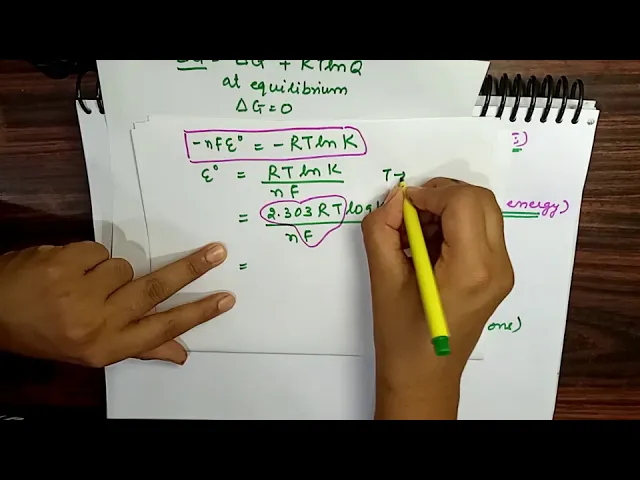 ΔG = ΔG° + RTlnQ
at equilibrium
ΔG=0
-nFε° = -RTlnK
ε° = RTlnK / nF
T→
= 2.303RT log / nF
=
energy)
one)